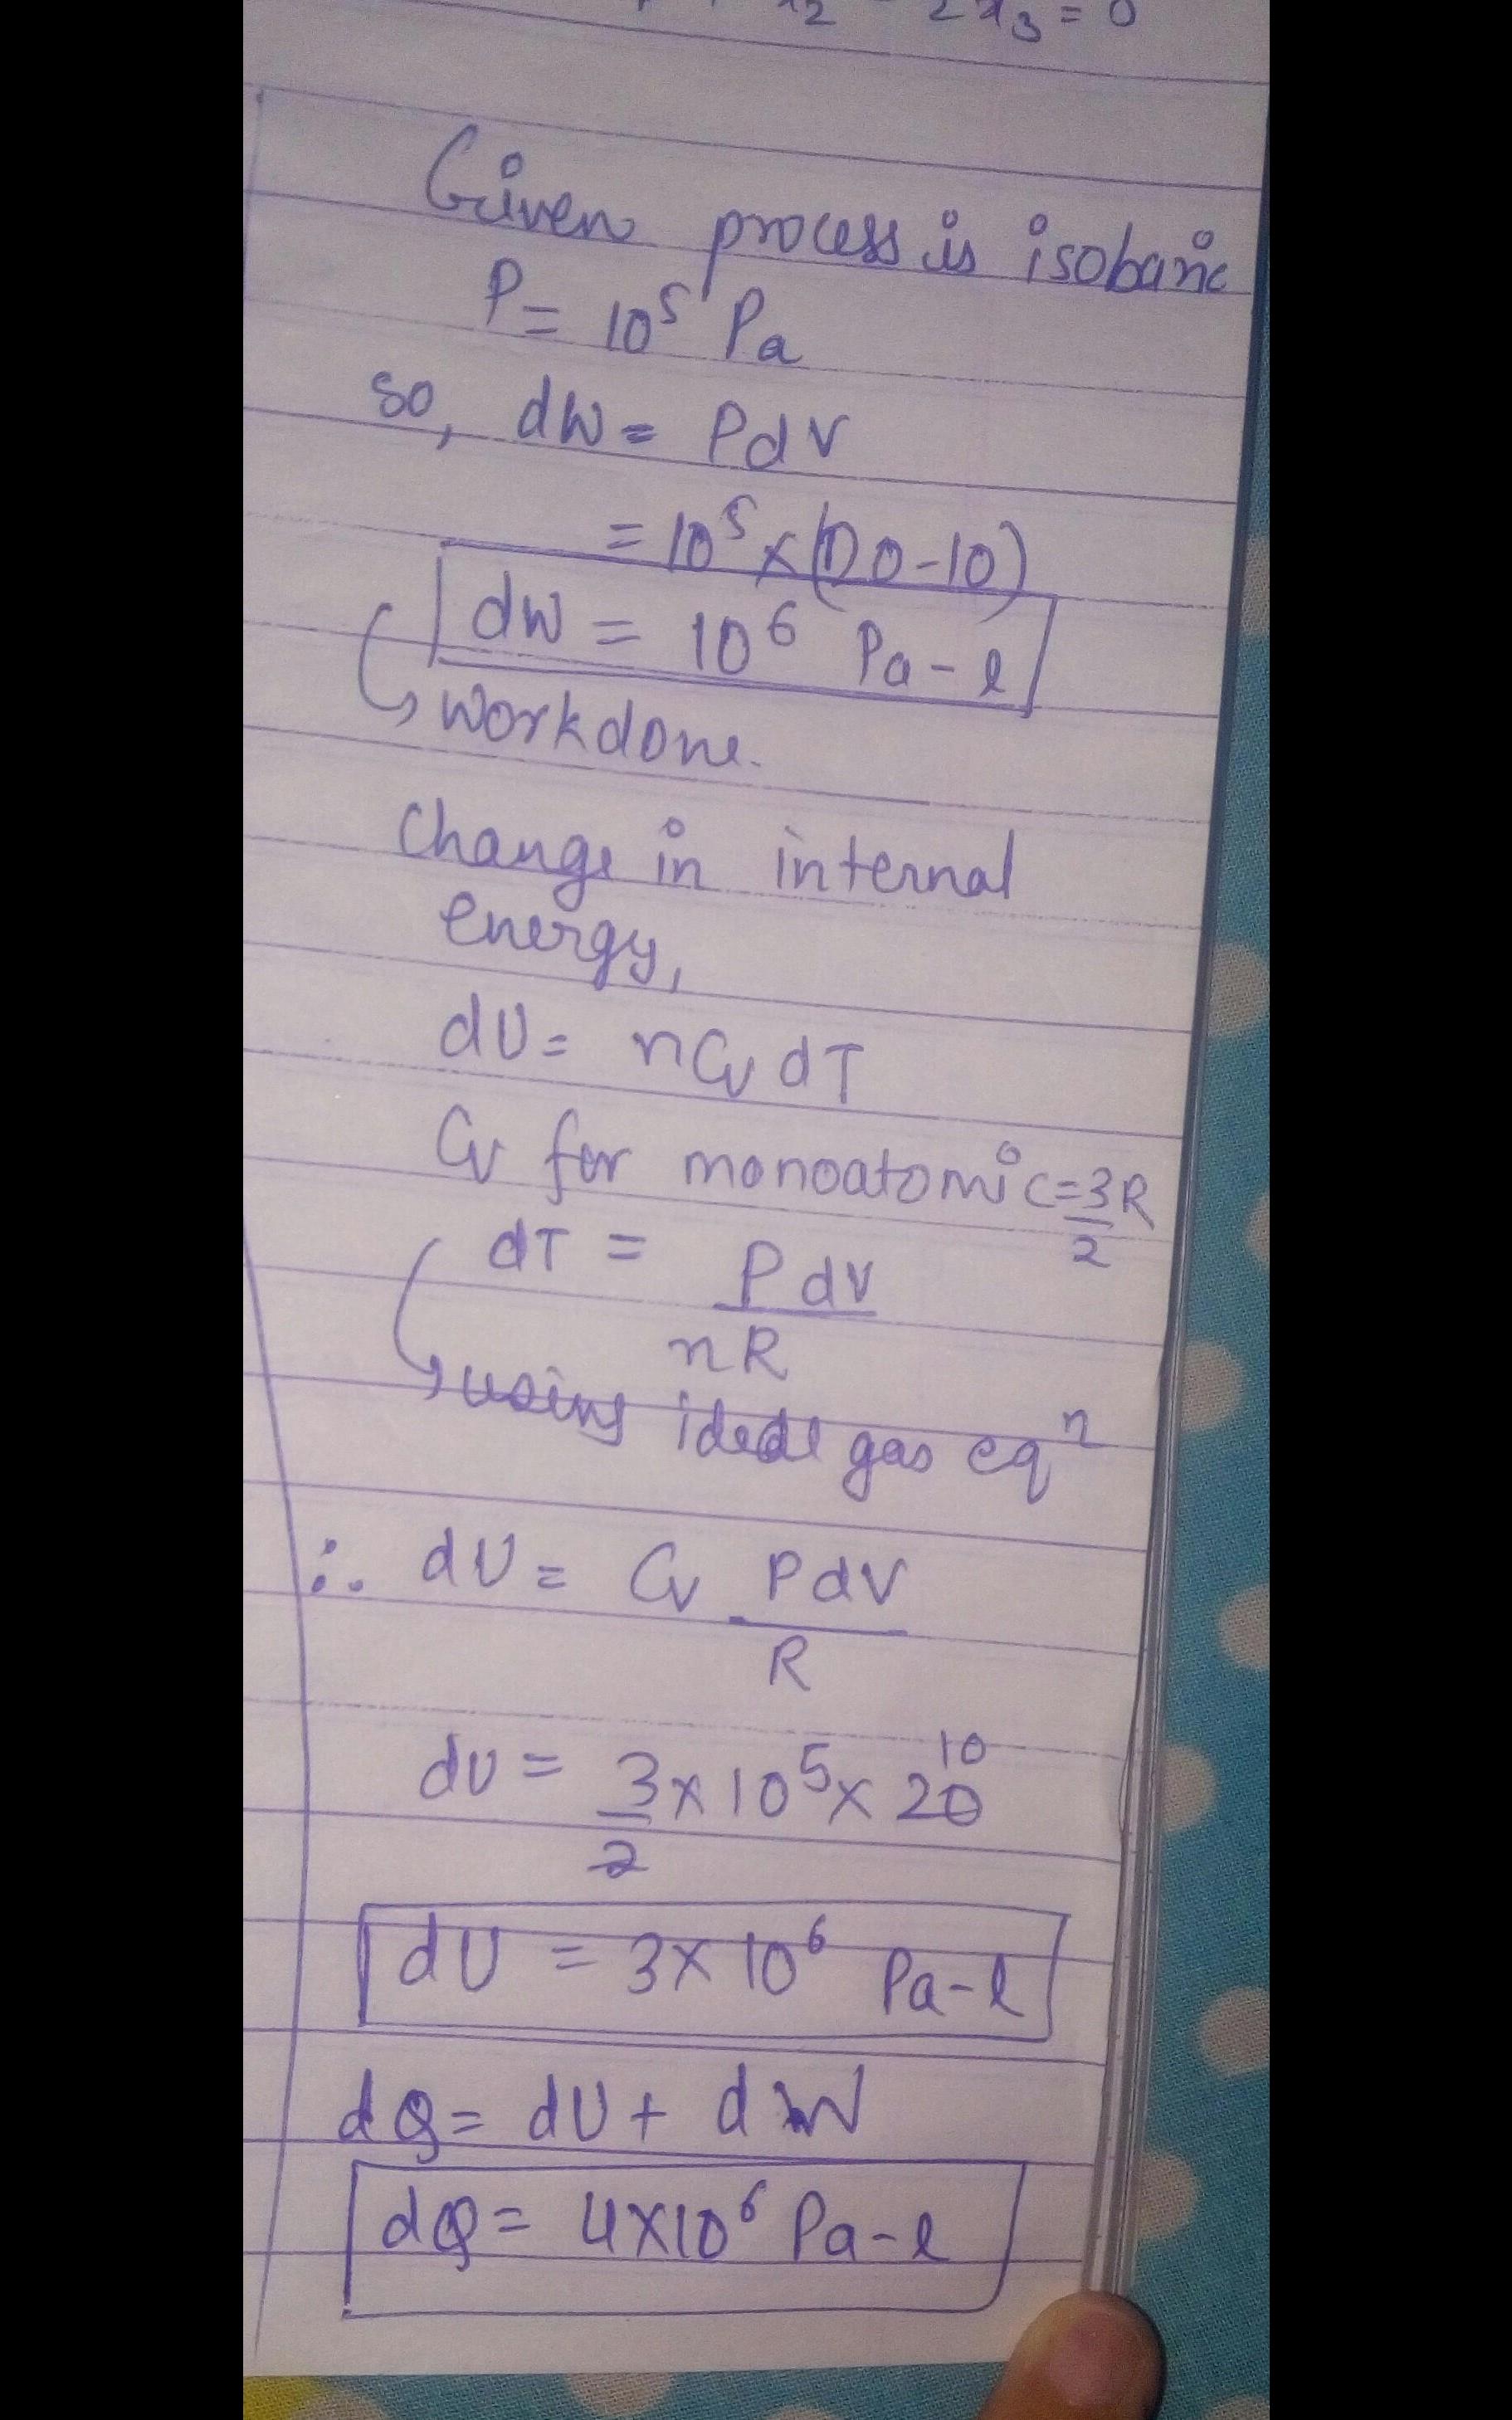 x₂ 2x₃ = 0
Given process is isobaric
P = 10⁵ Pa
so, dW = PdV
= 10⁵ × (20-10)
dW = 10⁶ Pa-l
↳ workdone.
Change in internal
energy,
dU = nCv dT
Cv for monoatomic = 3/2 R
dT = PdV/nR
↳ using ideal gas eqⁿ
∴ dU = Cv PdV/R
dU = 3/2 × 10⁵ × 20 10
dU = 3×10⁶ Pa-l
dQ = dU + dW
dQ = 4×10⁶ Pa-l